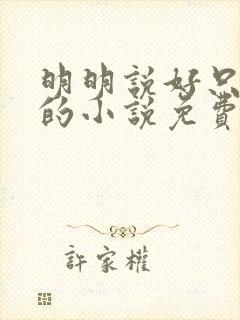 明明說好只
的小說免費
許家權